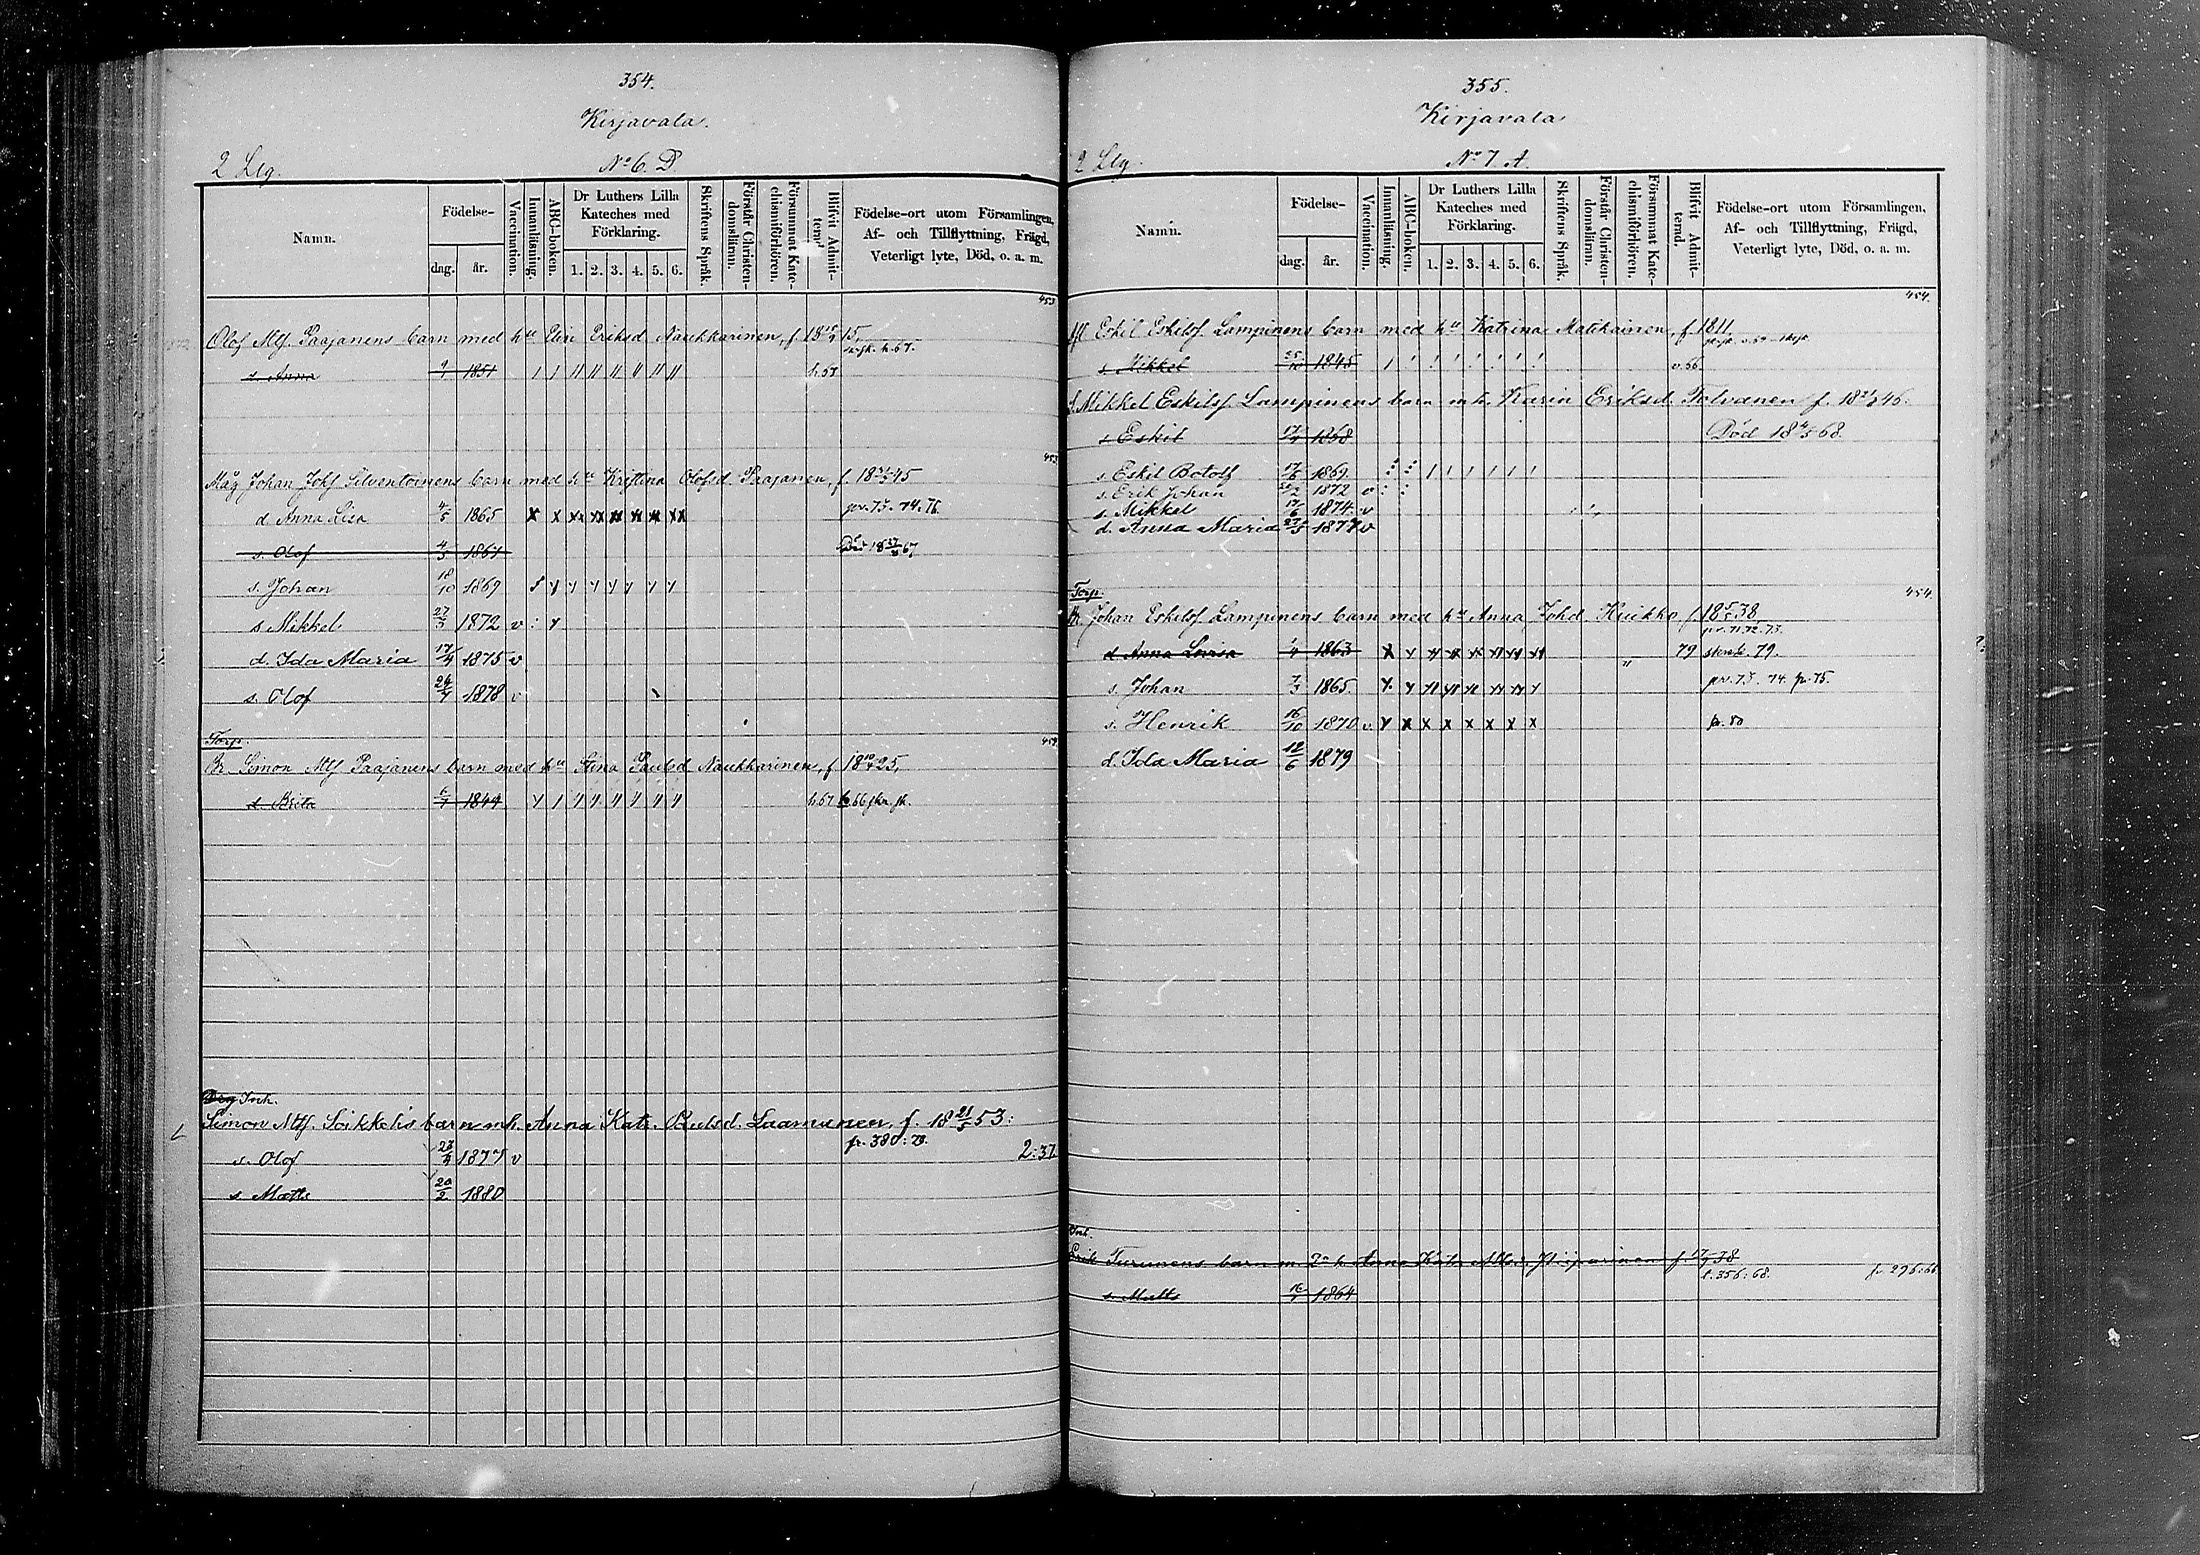 354.
Kirjavala.
2 Llg. No 6. D.
Namn. Födelse- dag. år. Vaccination. Innanläsning. ABC-boken. Dr Luthers Lilla Kateches med Förklaring. 1. 2. 3. 4. 5. 6. Skriftens Språk. Förstår Christendomsläran. Försummat Katechismiförhören. Blifvit Admitterad. Födelse-ort utom Församlingen, Af- och Tillflyttning, Frägd, Veterligt lyte, Död, o. a. m.
453
Olof Mtss. Paajanens barn med hu Eriksd Naukkarinen, f. 18 15.
Anna 9/1 1851 h. 67
453
Måg Johan Johss Silventoinens barn med hu Kristina Olofsd. Paajanen, f. 18 45
d. Anna Lisa 4/5 1865 pr. 73. 74. 76
s. Olof 4/3 1867 Död 18 67
s. Johan 18/10 1869
s. Mikkel 27/3 1872 v
d. Ida Maria 17/4 1875 v
s. Olof 24/4 1878 v
Torp.
Br. Simon Mtss Paajanens barn med hu Anna Paulsd Naukkarinen, f. 18 25.
d. Brita 6/7 1844 h. 67
Inh.
Simon Mtss. Soikkelis barn m h. Anna Katr. Paulsd. Laamanen, f. 18 21/5 53:
fr. 380: 79.
s. Olof 23/4 1877 v 2: 37
s. Matts 20/2 1880
355.
Kirjavala
2 Llg. No 7. A.
Namn. Födelse- dag. år. Vaccination. Innanläsning. ABC-boken. Dr Luthers Lilla Kateches med Förklaring. 1. 2. 3. 4. 5. 6. Skriftens Språk. Förstår Christendomsläran. Försummat Katechismiförhören. Blifvit Admitterad. Födelse-ort utom Församlingen, Af- och Tillflyttning, Frägd, Veterligt lyte, Död, o. a. m.
454.
Eskil Eskilss. Lampinens barn med hu Katrina Matikainen, f. 1811.
s. Mikkel 25/10 1845 v. 66.
S. Mikkel Eskilss. Lampinens barn m h. Karin Eriksd. Tolvanen f. 18 46.
s. Eskil 17/4 1868 Död 18 4/5 68.
s. Eskil Botolf 17/6 1869
s. Erik Johan 1872 v
s. Mikkel 17/6 1874 v
d. Anna Maria 27/5 1877 v
Torp. 454.
Br. Johan Eskilss. Lampinens barn med hu Anna Johd. Kiukko f. 18 38.
pr. 71. 72. 73.
d. Anna Lovisa 1/4 1863 79
s. Johan 7/3 1865 pr. 73. 74. fr. 75.
s. Henrik 16/10 1870 v fr. 80
d. Ida Maria 12/6 1879
Inh.
Erik Turunens barn m 2a h. Anna Katr. f. 17/7 38
t. 356: 68. fr. 296: 66
s. Matts 1864